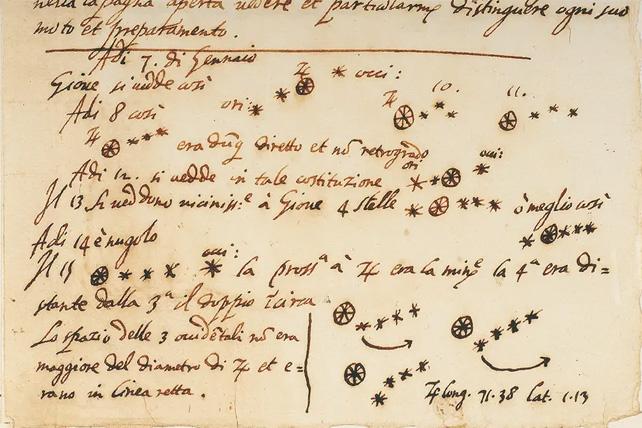 nella pagina aperta vedere et particularmᵉ distinguere ogni suo
moto et preparamento.
Adi 7. di Gennaio
Gioue si uedde così ori: occi:
Adi 8 così 10. 11.
era dūq. diretto et nō retrogrado
Adi 12. si uedde in tale costituzione ori: oui:
Il 13 si ueddono uiciniss.ᵉ à Gioue 4 stelle ò meglio così
Adi 14 è nugolo
Il 15 oui: la prossᵃ à ♃ era la minᵉ la 4ᵃ era di=
stante dalla 3ᵃ il doppio ī circa
Lo spazio delle 3 ouidētali nō era
maggiore del diametro di ♃ et e=
rano in linea retta.
♃ long. 71.38 lat. 1.13